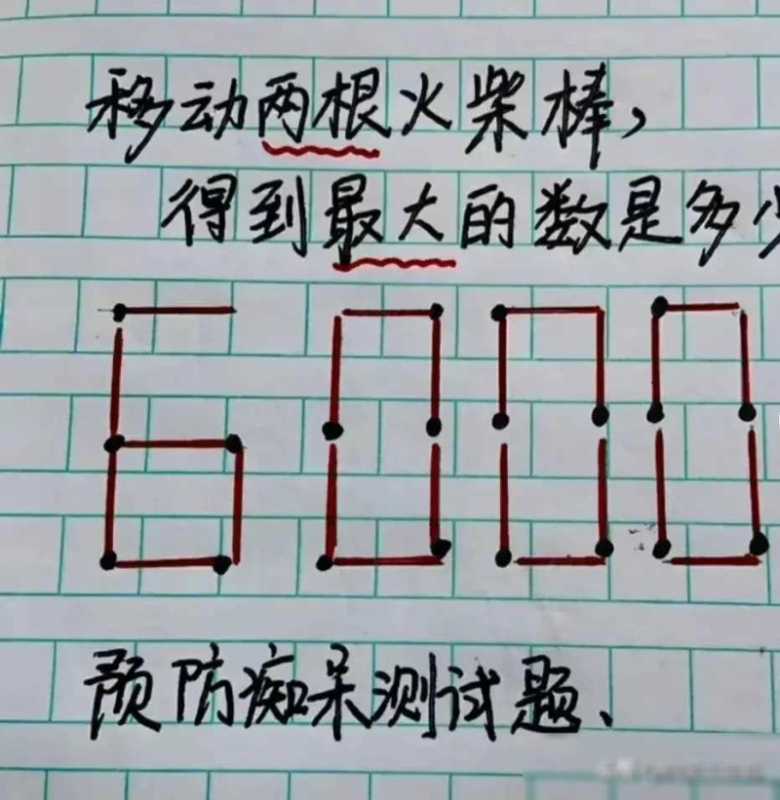 移动两根火柴棒，
得到最大的数是多少
6000
预防痴呆测试题、